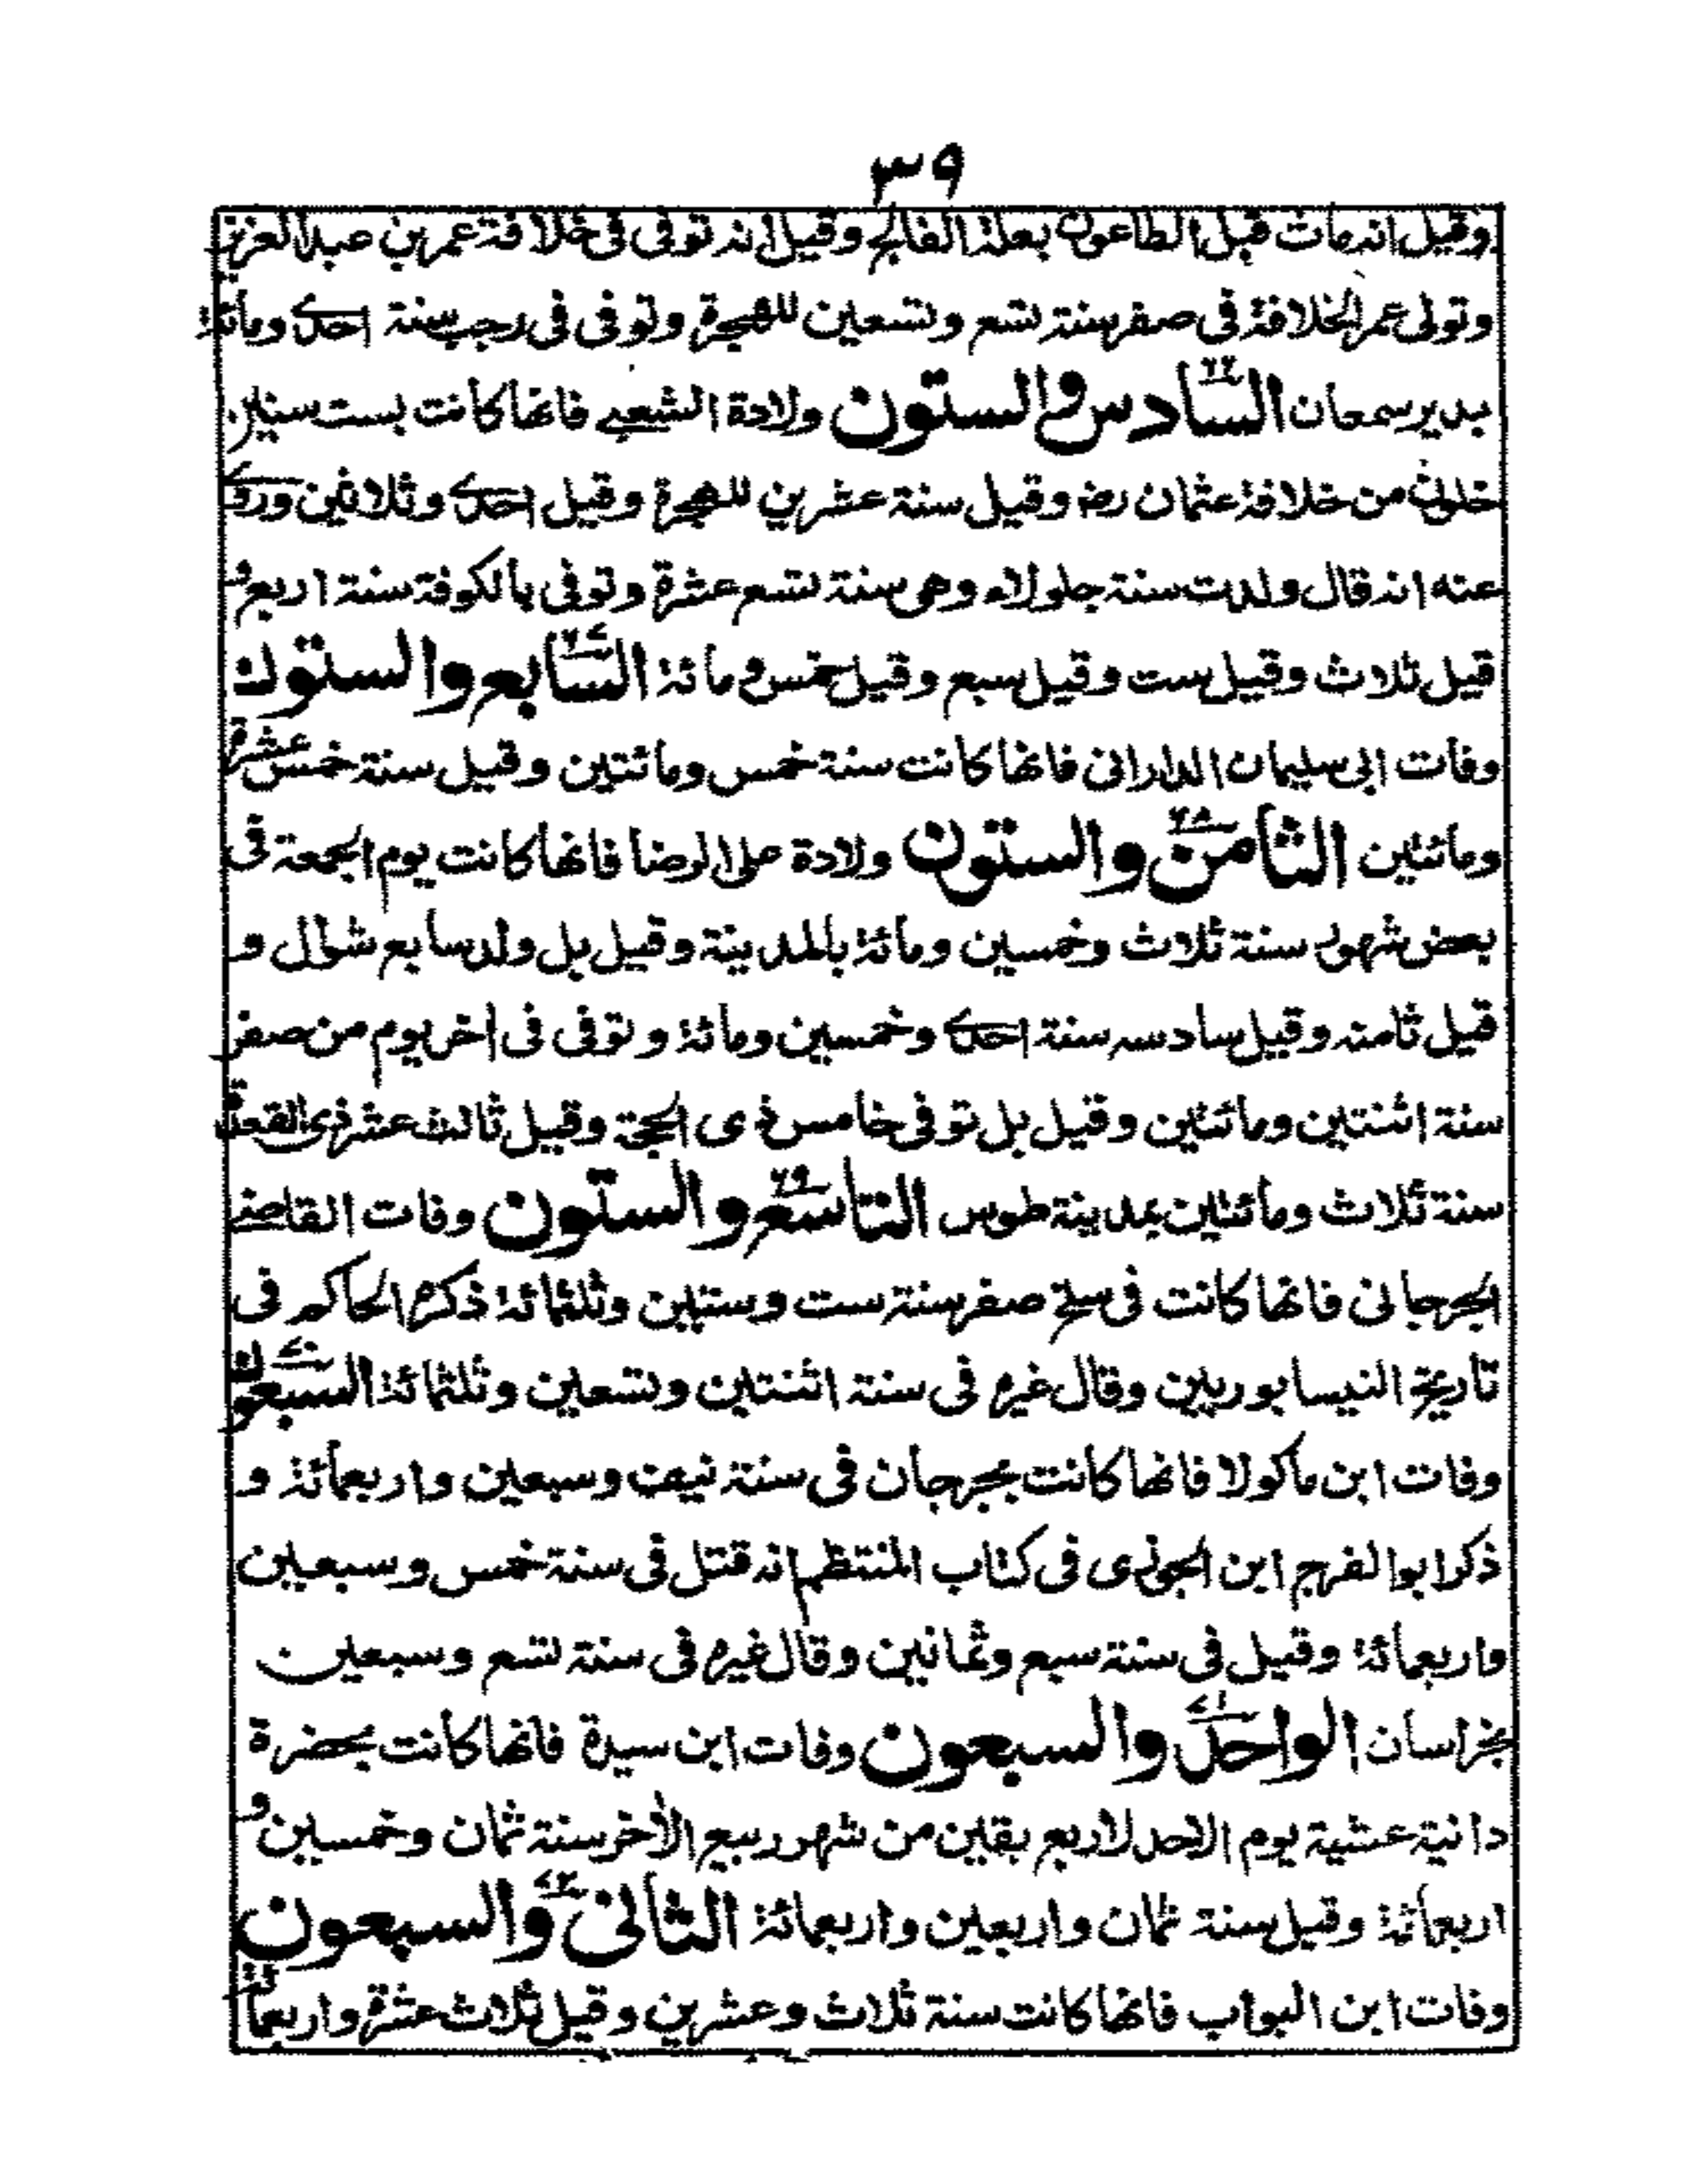 ٣٩
وقيل انه مات قبل الطاعون بعلة الفالج وقيل انه توفى فى خلافة عمر بن عبد العزيز
وتولى عمر الخلافة فى صفر سنة تسع وتسعين للهجرة وتوفى فى رجب سنة احدى ومائة
بدير سمعان السادس والستون ولادة الشعبى فانها كانت بست سنين
خلون من خلافة عثمان رض وقيل سنة عشرين للهجرة وقيل احدى وثلاثين وروى
عنه انه قال ولدت سنة جلولاء وهى سنة تسع عشرة وتوفى بالكوفة سنة اربع و
قيل ثلاث وقيل ست وقيل سبع وقيل خمس ومائة السابع والستون
وفات ابى سليمان الدارانى فانها كانت سنة خمس ومائتين وقيل سنة خمس عشرة
ومائتين الثامن والستون ولادة على الرضا فانها كانت يوم الجمعة فى
بعض شهور سنة ثلاث وخمسين ومائة بالمدينة وقيل بل ولد سابع شوال و
قيل ثامنه وقيل سادسه سنة احدى وخمسين ومائة وتوفى فى اخر يوم من صفر
سنة اثنتين ومائتين وقيل بل توفى خامس ذى الحجة وقيل ثالث عشر ذى القعدة
سنة ثلاث ومائتين بمدينة طوس التاسع والستون وفات القاضى
الجرجانى فانها كانت فى سلخ صفر سنة ست وستين وثلثمائة ذكره الحاكم فى
تاريخ النيسابوريين وقال غيره فى سنة اثنتين وتسعين وثلثمائة السبعون
وفات ابن ماكولا فانها كانت بجرجان فى سنة نيف وسبعين واربعمائة و
ذكر ابو الفرج ابن الجوزى فى كتاب المنتظم انه قتل فى سنة خمس وسبعين
واربعمائة وقيل فى سنة سبع وثمانين وقال غيره فى سنة تسع وسبعين
بخراسان الواحد والسبعون وفات ابن سيدة فانها كانت بحضرة
دانية عشية يوم الاحد لاربع بقين من شهر ربيع الاخر سنة ثمان وخمسين و
اربعمائة وقيل سنة ثمان واربعين واربعمائة الثانى والسبعون
وفات ابن البواب فانها كانت سنة ثلاث وعشرين وقيل ثلاث عشرة واربعمائة